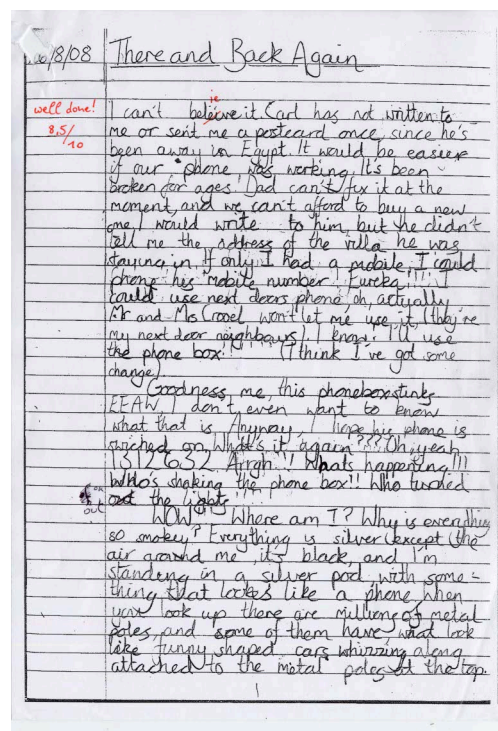 /8/08 There and Back Again
well done!
8.5/10
ie
I can't beleive it. Carl has not written to
me or sent me a postcard once, since he's
been away in Egypt. It would be easier
if our phone was working. It's been
broken for ages. Dad can't fix it at the
moment, and we can't afford to buy a new
one. I would write to him, but he didn't
tell me the address of the villa he was
staying in. If only I had a mobile, I could
phone his mobile number. Eureka!!!! I
could use next doors phone, oh, actually
Mr and Ms won't let me use it (they're
my next door neighbours). I know! I'll use
the phone box!!!!! (I think I've got some
change).
Goodness me, this phonebox stinks
EEAW, I don't even want to know
what that is. Anyway, I hope his phone is
swiched on. What's it again??? Oh, yeah
1312632 Arrgh!!! Whats happening!!!
Who's shaking the phone box!! Who turned
out the lights!!!
out
WOW!!! Where am I? Why is everything
so smokey? Everything is silver (except the
air around me, it's black, and I'm
standing in a silver pod with some-
thing that lookes like a phone when
you look up there are millions of metal
poles, and some of them have what look
like funny shaped cars whirring along
attached to the metal poles at the top.
1